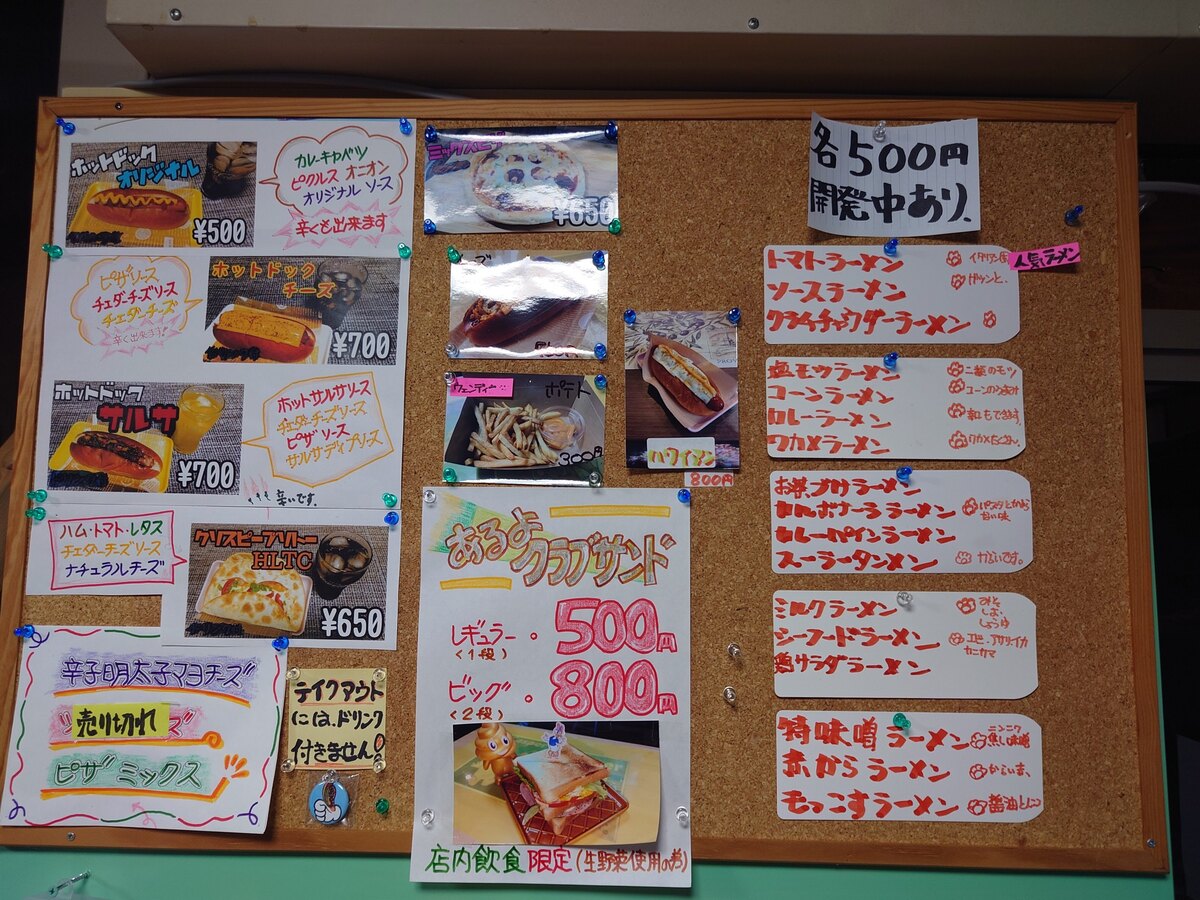 ホットドック
オリジナル
¥500
カレーキャベツ
ピクルス オニオン
オリジナル ソース
辛くも出来ます
ピザソース
チェダーチーズソース
チェダーチーズ
辛く出来ます!
ホットドック
チーズ
¥700
ホットドック
サルサ
¥700
ホットサルサソース
チェダーチーズソース
ピザソース
サルサディプソース
辛いです。
ハム・トマト・レタス
チェダーチーズソース
ナチュラルチーズ
クリスピーブリトー
HLTC
¥650
辛子明太子マヨチーズ
売り切れ
ピザ ミックス
テイクアウト
には、ドリンク
付きません!
¥650
ポテト
300円
ハワイアン
800円
あるよ
クラブサンド
レギュラー・500円
<1段>
ビッグ・800円
<2段>
店内飲食限定(生野菜使用の為)
各500円
開発中あり、
人気ラーメン
トマトラーメン
ソースラーメン
クラムチャウダーラーメン
塩モツラーメン
コーンラーメン
カレーラーメン
ワカメラーメン
お茶づけラーメン
カルボナーララーメン
カレーパインラーメン
スーラータンメン
からいです。
ミルクラーメン
みそ
しお、
しょうゆ
シーフードラーメン
エビ、アサリ、イカ
カニカマ
サラダラーメン
特味噌ラーメン
ニンニク
焦し味噌
赤からラーメン
からいま、
もっこすラーメン
醤油とんこつ